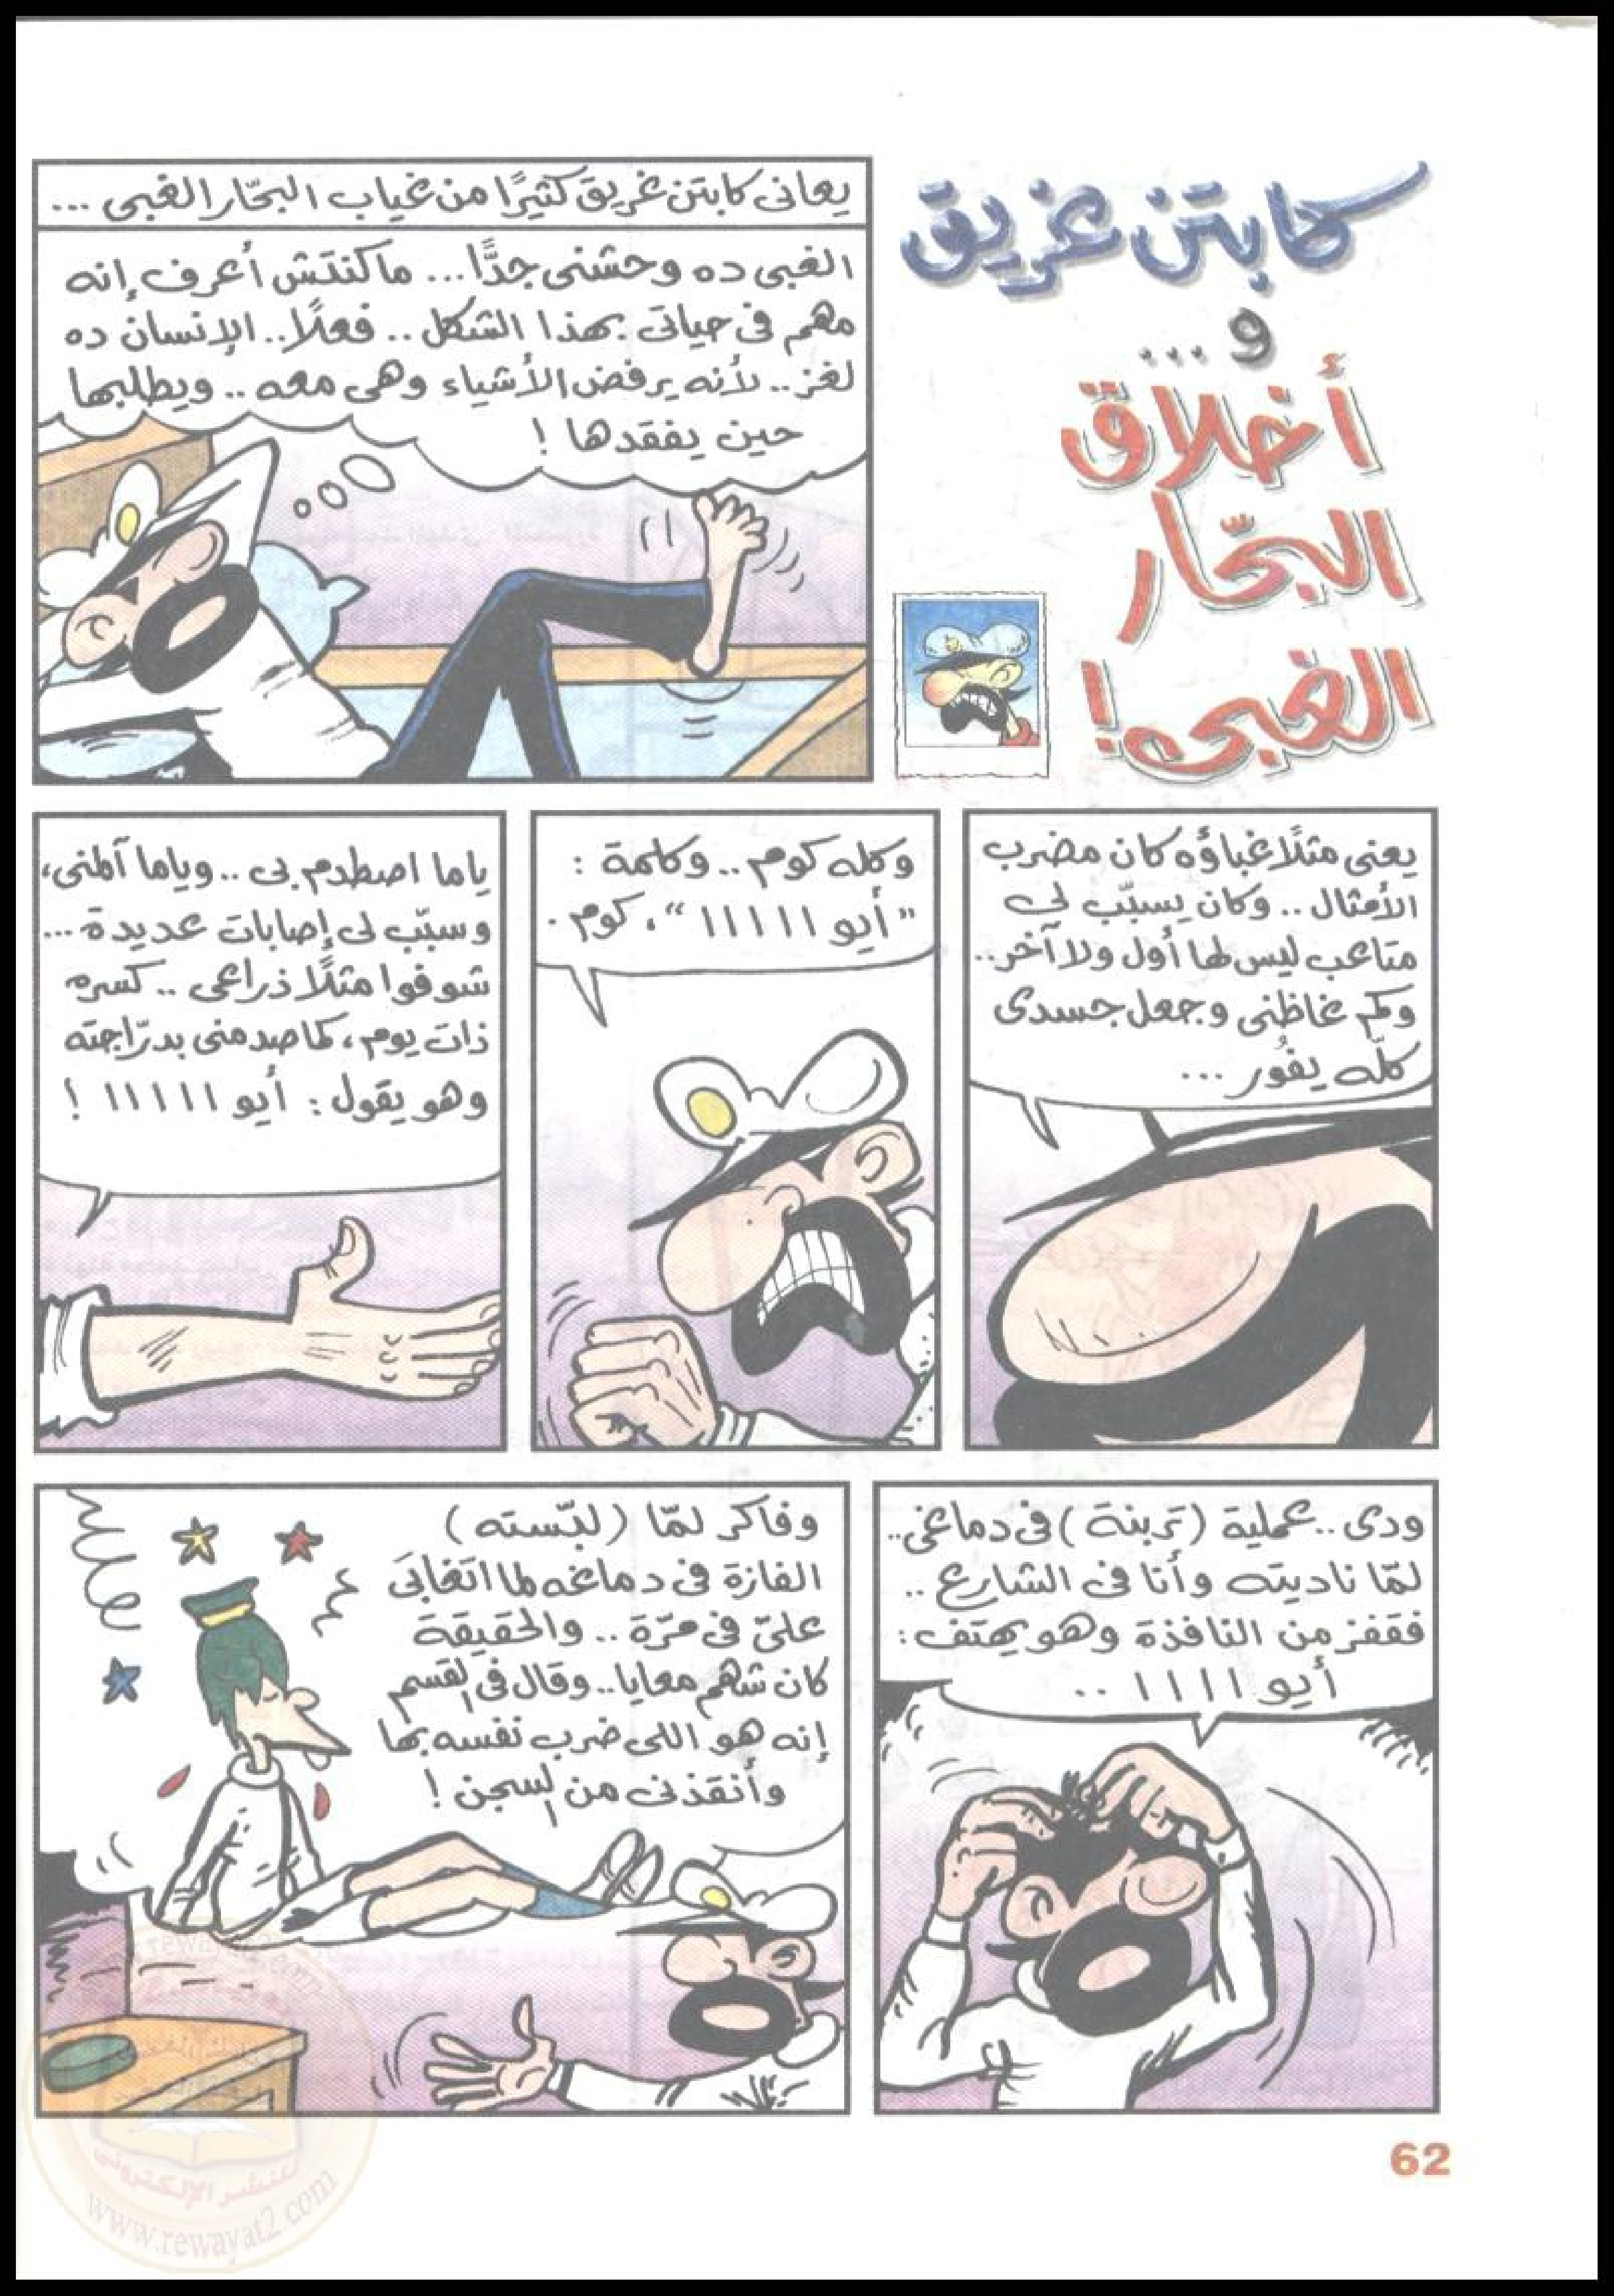 كابتن غريق
و...
أخلاق
البحّار
الغبى!
يعانى كابتن غريق كثيرًا من غياب البحّار الغبى ...
الغبى ده وحشنى جدًّا... ماكنتش أعرف إنه
مهم فى حياتى بهذا الشكل.. فعلًا.. الإنسان ده
لغز.. لأنه يرفض الأشياء وهى معه.. ويطلبها
حين يفقدها!
يعنى مثلًا غباؤه كان مضرب
الأمثال.. وكان يسبّب لى
متاعب ليس لها أول ولا آخر..
وكم غاظنى وجعل جسدى
كلّه يفُور ...
وكله كوم.. وكلمة:
"أيو ا ا ا ا ا"، كوم.
ياما اصطدم بى.. وياما آلمنى،
وسبّب لى إصابات عديدة...
شوفوا مثلًا ذراعى.. كسره
ذات يوم، لما صدمنى بدرّاجته
وهو يقول: أيو ا ا ا ا ا!
ودى.. عملية (تربنة) فى دماغى..
لمّا ناديته وأنا فى الشارع..
فقفز من النافذة وهو يهتف:
أيو ا ا ا ا..
وفاكر لمّا (لبّسته)
الفازة فى دماغه لما اتغابَى
علىّ فى مرّة.. والحقيقة
كان شهم معايا.. وقال فى القسم
إنه هو اللى ضرب نفسه بها
وأنقذنى من السجن!
62
للنشر الإلكترونى
www.rewayat2.com